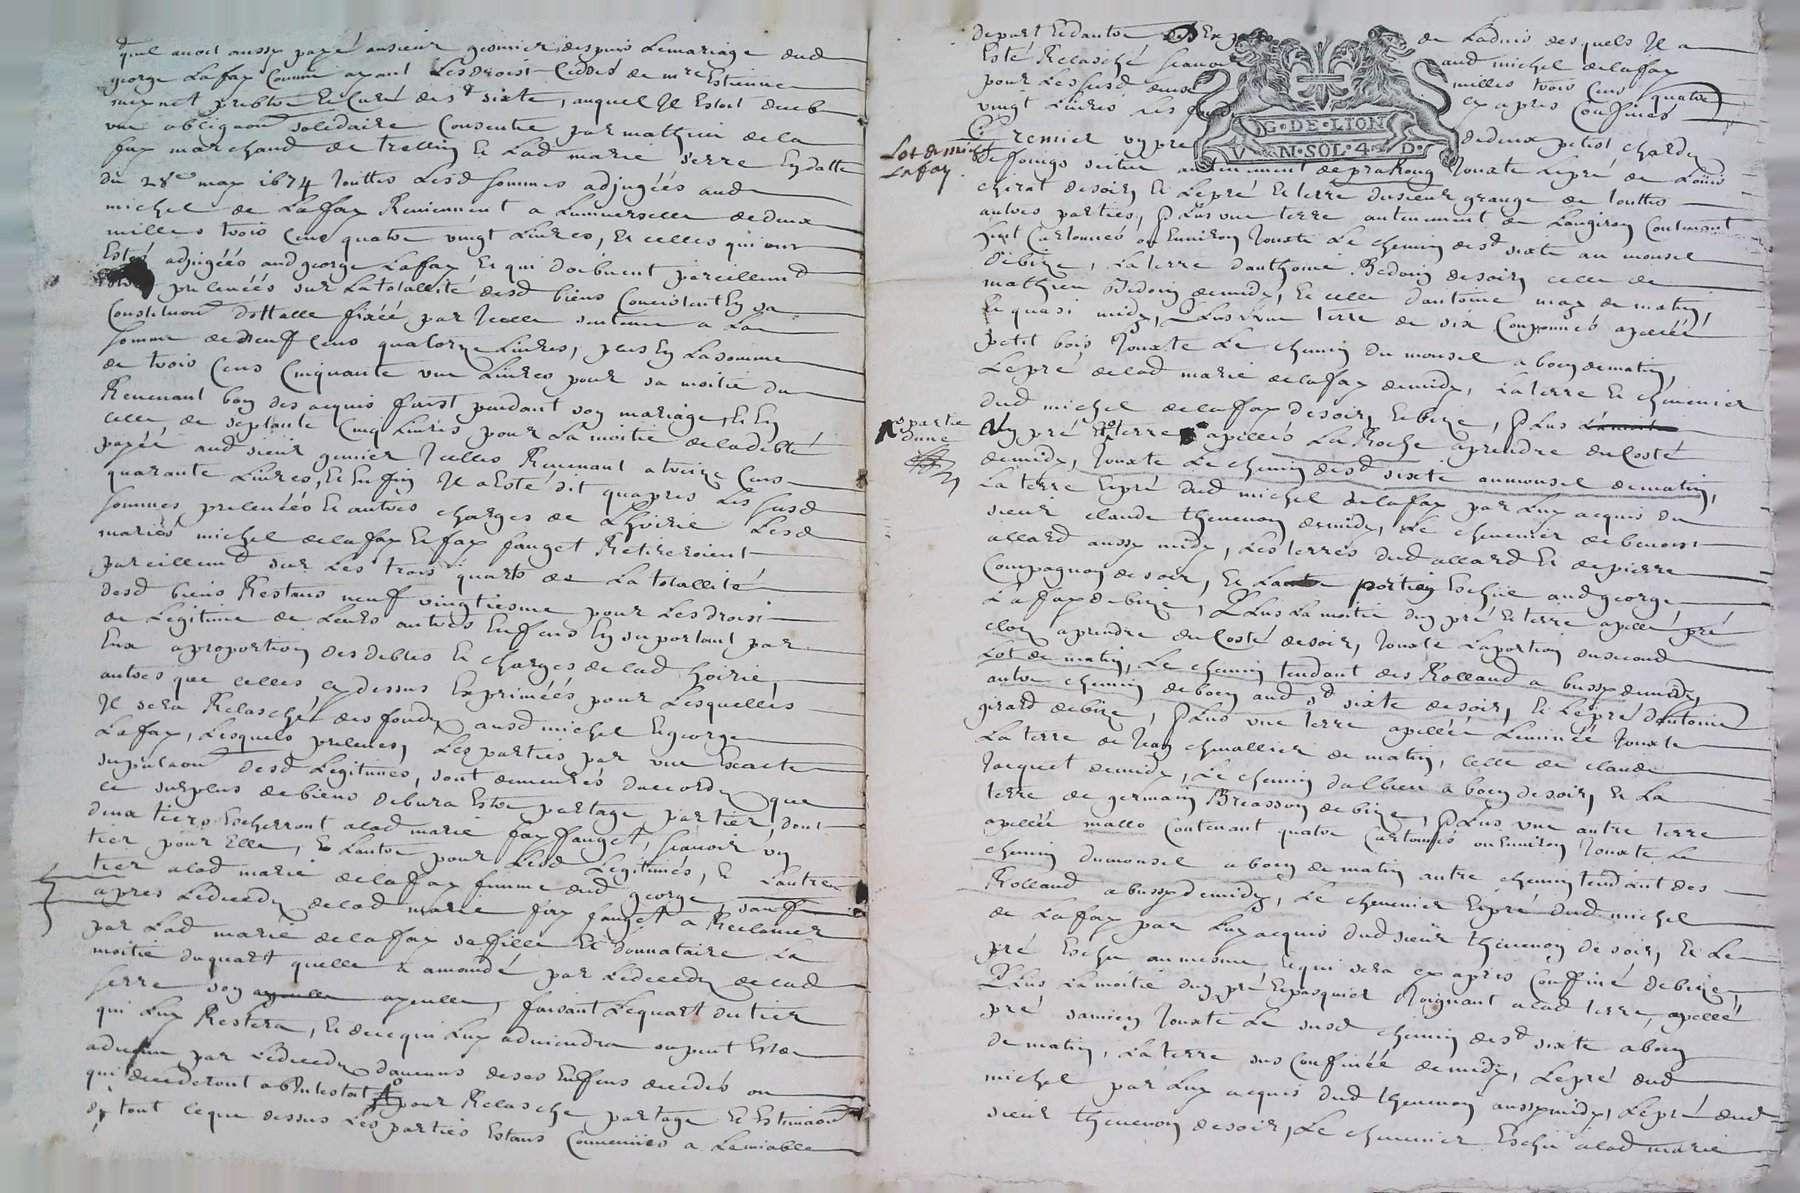 quil avoit aussy payé ausieur grunier despuis Lemariage dud
george Lafay Comme ayant Lesdroist Ceddés de mre Estienne
meynet prebtre Et Curé de st sixte, auquel Il Estoit deub
vne obligaon solidaire Consentie par mathieu dela
fay marchand de trellin Et Lad marie serre En datte
du 28e may 1674 touttes Lesd sommes adjugéés aud
michel de Lafay Reviennent a Luniverselle de deux
milles trois Cens quatre vingt Livres, Et celles qui ont
Estés adjugéés aud george Lafay Et qui doibvent pareillemt
prelevéés sur Latotallité desd biens Concistent En sa
Constituon dottalle fixéé par Icelle sentence a La
somme de neuf Cens quatorze Livres, plus En Lasomme
de trois Cens Cinquante vne Livres pour sa moitié du
Revenant bon des acquis faist pendant son mariage, Et En
celle de septante Cinq Livres pour La moitié de la debte
payéé aud sieur grunier Icelles Revenant a treize Cens
quarante Livres, Et Enfin Il a Esté dit quapres Les susd
sommes prelevéés Et autres charges de Lhoirie Lesd
mariés michel delafay Et fay fauget Retireroient
pareillemt sur Les trois quarts de La totallité
desd biens Restans neuf vingtiesme pour Lesdroist
de Legitime de Leurs autres Enfens En suportant par
Eux aproportion des debtes Et charges delad hoirie,
autres que celles cy dessus Expriméés pour Lesquelles
Il sera Relasché des fonds ausd michel Et george
Lafay, Lesquels preleves, Les parties par vne Exacte
supputaon desd Legitimes, sont demeurés daccord que
Ce surplus de biens debvra Estre partagé par tier, dont
deux tiers Escherront alad marie fay fauget, scavoir vn
tier pour Elle, Et Lautre pour Lesd Legitimes, Et Lautre
tier alad marie delafay femme dud george, sauf
apres Ledeceds delad marie fay fauget a Reclamer
par Lad marie delafay safille Et donnataire La
moitié duquart quelle a amandé par Ledeceds delad
serre son ayeulle, faisant Lequart dutier
qui Luy Restera, Et decequi Luy adviendra ou peut Estre
advenu par Ledeceds daucuns deses Enfens decedés ou
qui decederont abIntestat pour Relasche partage Et Estimaon
de tout Ceque dessus Les parties Estans Convenues a Lamiable
depart Et dautre
de Ladvis desquels Il a
Esté Relasché scavoir
aud michel delafay
pour Les susd deux
milles trois Cens quatre
vingt Livres Les
cy apres Confinés
G·DE·LION
V·N·SOL·4·D·
Premier vn pre
dedeux petits chards
Lot de michel
Lafay
de foings scitué autenement depralong Jouxte Lepré de Louis
chirat desoir, Et Lepré Et terre dusieur grange de touttes
autres parties, Plus vne terre autenement de Langiron Contenant
huit Cartonnés ou Environ Jouxte Le chemin de st sixte au monsel
debize, La terre danthoine Bedoin desoir, celle de
mathieu Bedoin demidy, Et celle dantoine may de matin,
Et quasi midy, Plus vne terre de six Couponnés apelléé
petit bois Jouxte Le chemin du monsel a boen dematin,
Lepré delad marie delafay demidy, La terre Et chenevier
dud michel delafay desoir, Et bize, Plus
partie
dune
Vn pré Et terre apellés La Roche aprendre ducosté
demidy, Jouxte Le chemin de st sixte aumonsel dematin,
La terre Et pré dud michel delafay par Luy acquis du
sieur claude thevenon demidy, Le chenevier debenoist
allard aussy midy, Les terres dud allard Et depierre
Compagnon desoir, Et La portion Eschüe aud george
Lafay debize, Plus La moitié dun pré Et terre apellé pré
clos aprendre du Costé desoir, Jouxte Laportion dusecond
Lot de matin, Le chemin tendant des Rolland a bussy demidy,
autre chemin deboen aud st sixte desoir, Et Lepré dantoine
girard debize, Plus vne terre apelléé Leminéé Jouxte
La terre de Jean chevallier de matin, celle de claude
Jacquet demidy, Le chemin dalbieu a boen desoir, Et La
terre de germain Breasson debize, Plus vne autre terre
apelléé mallo Contenant quatre Cartonnés ou Environ Jouxte Le
chemin dumonsel a boen dematin autre chemin tendant des
Rolland abussy demidy, Le chenevier Et pré dud michel
de Lafay par Luy acquis dud sieur thevenon desoir, Et Le
pré Eschu aumesme Et qui sera cy apres Confiné debize,
Plus La moitié dun pré Et pasquier Joignant alad terre, apellé
pré samien Jouxte Le susd chemin de st sixte aboen
de matin, La terre sus Confinéé demidy, Lepré dud
michel par Luy acquis dud thevenon aussy midy, Le pré dud
sieur thevenon desoir, Le chenevier Eschü alad marie